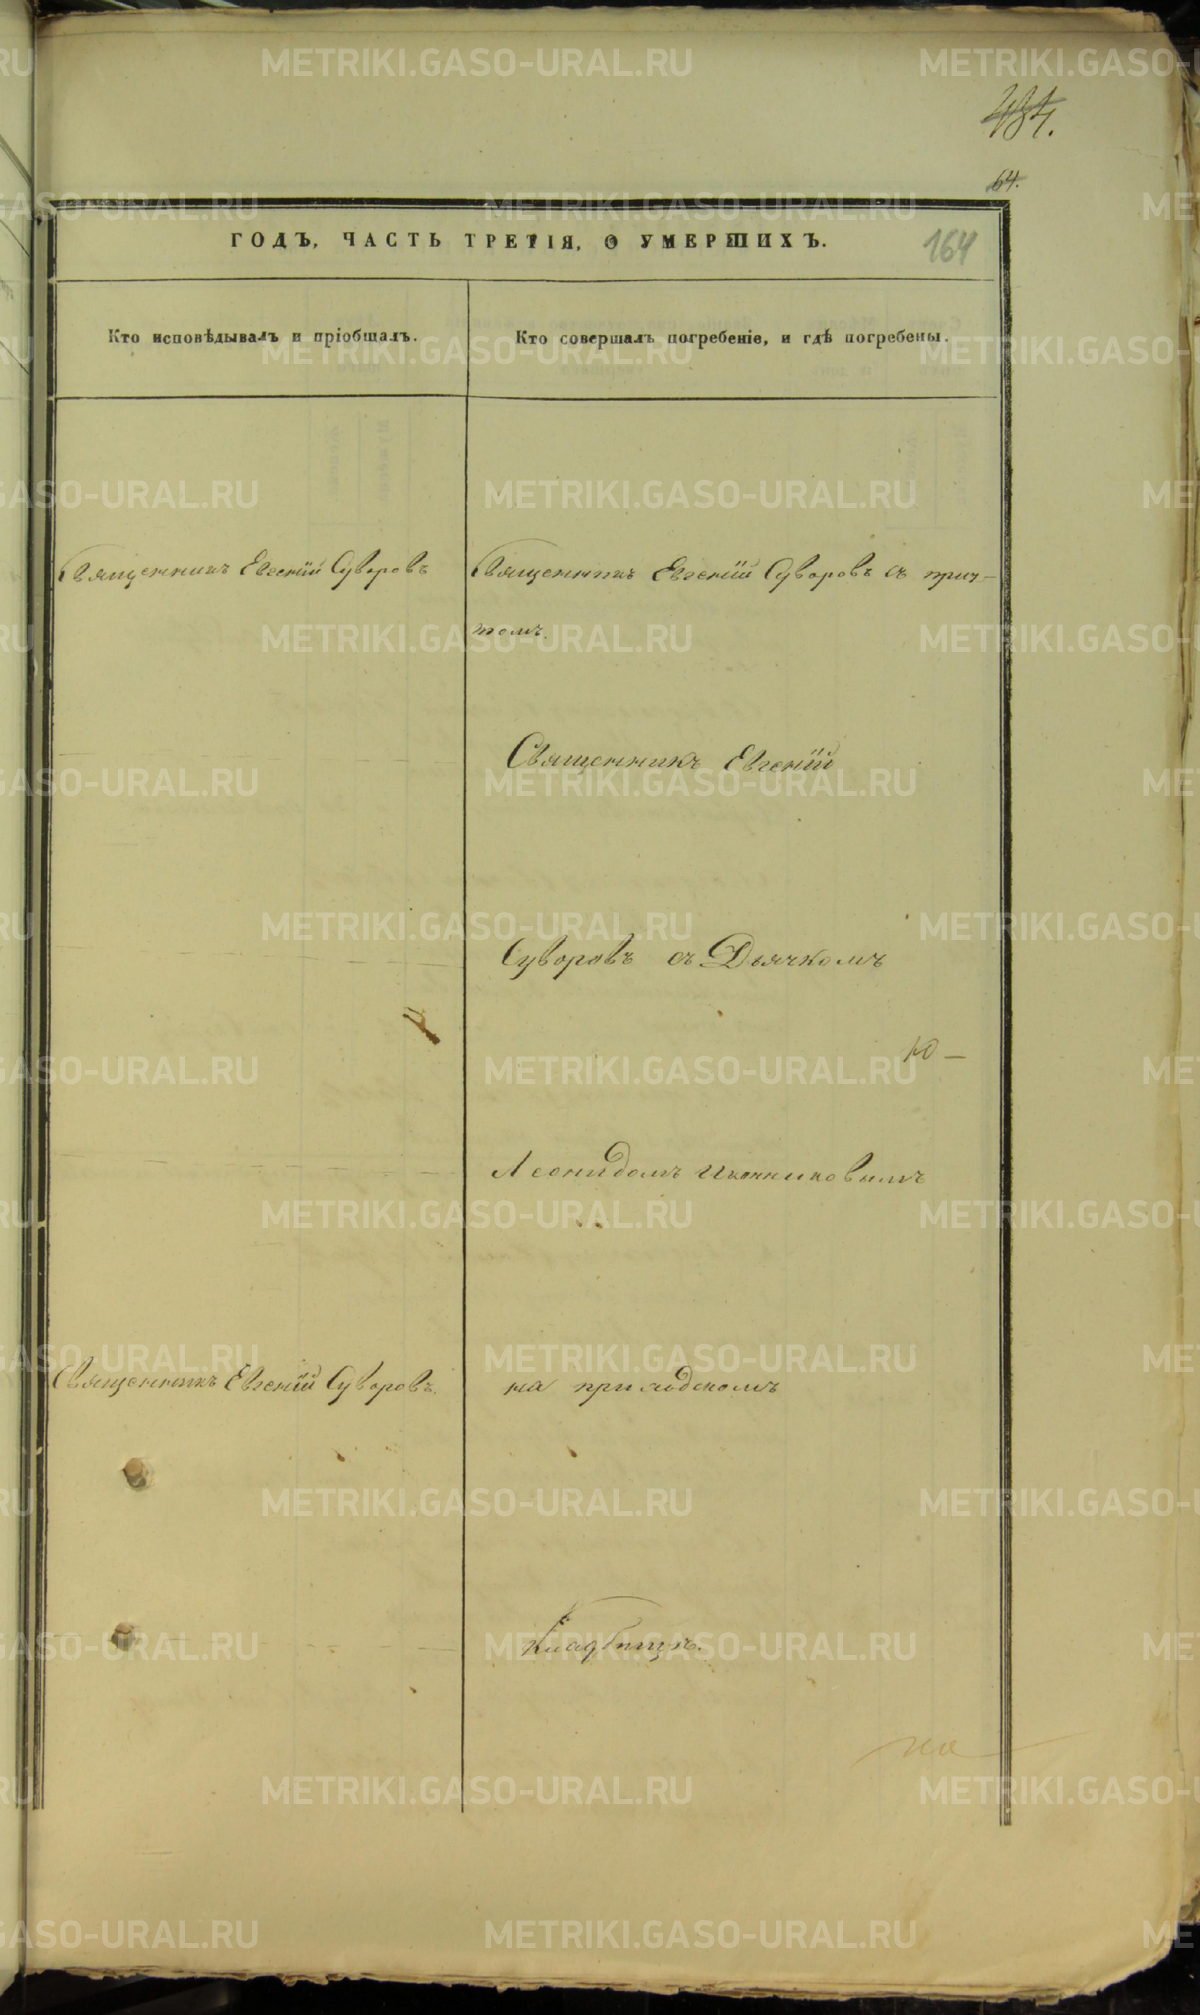 434.
64.
ГОДЪ, ЧАСТЬ ТРЕТІЯ, О УМЕРШИХЪ.
164
Кто исповѣдывалъ и пріобщалъ.
Кто совершалъ погребеніе, и гдѣ погребены.
Священникъ Евгений Суворовъ
Священникъ Евгений Суворовъ съ прич-
томъ.
Священникъ Евгений
Суворовъ съ Дьячкомъ
Леонидомъ
Священникъ Евгений Суворовъ.
на приходскомъ
кладбищѣ.
METRIKI.GASO-URAL.RU